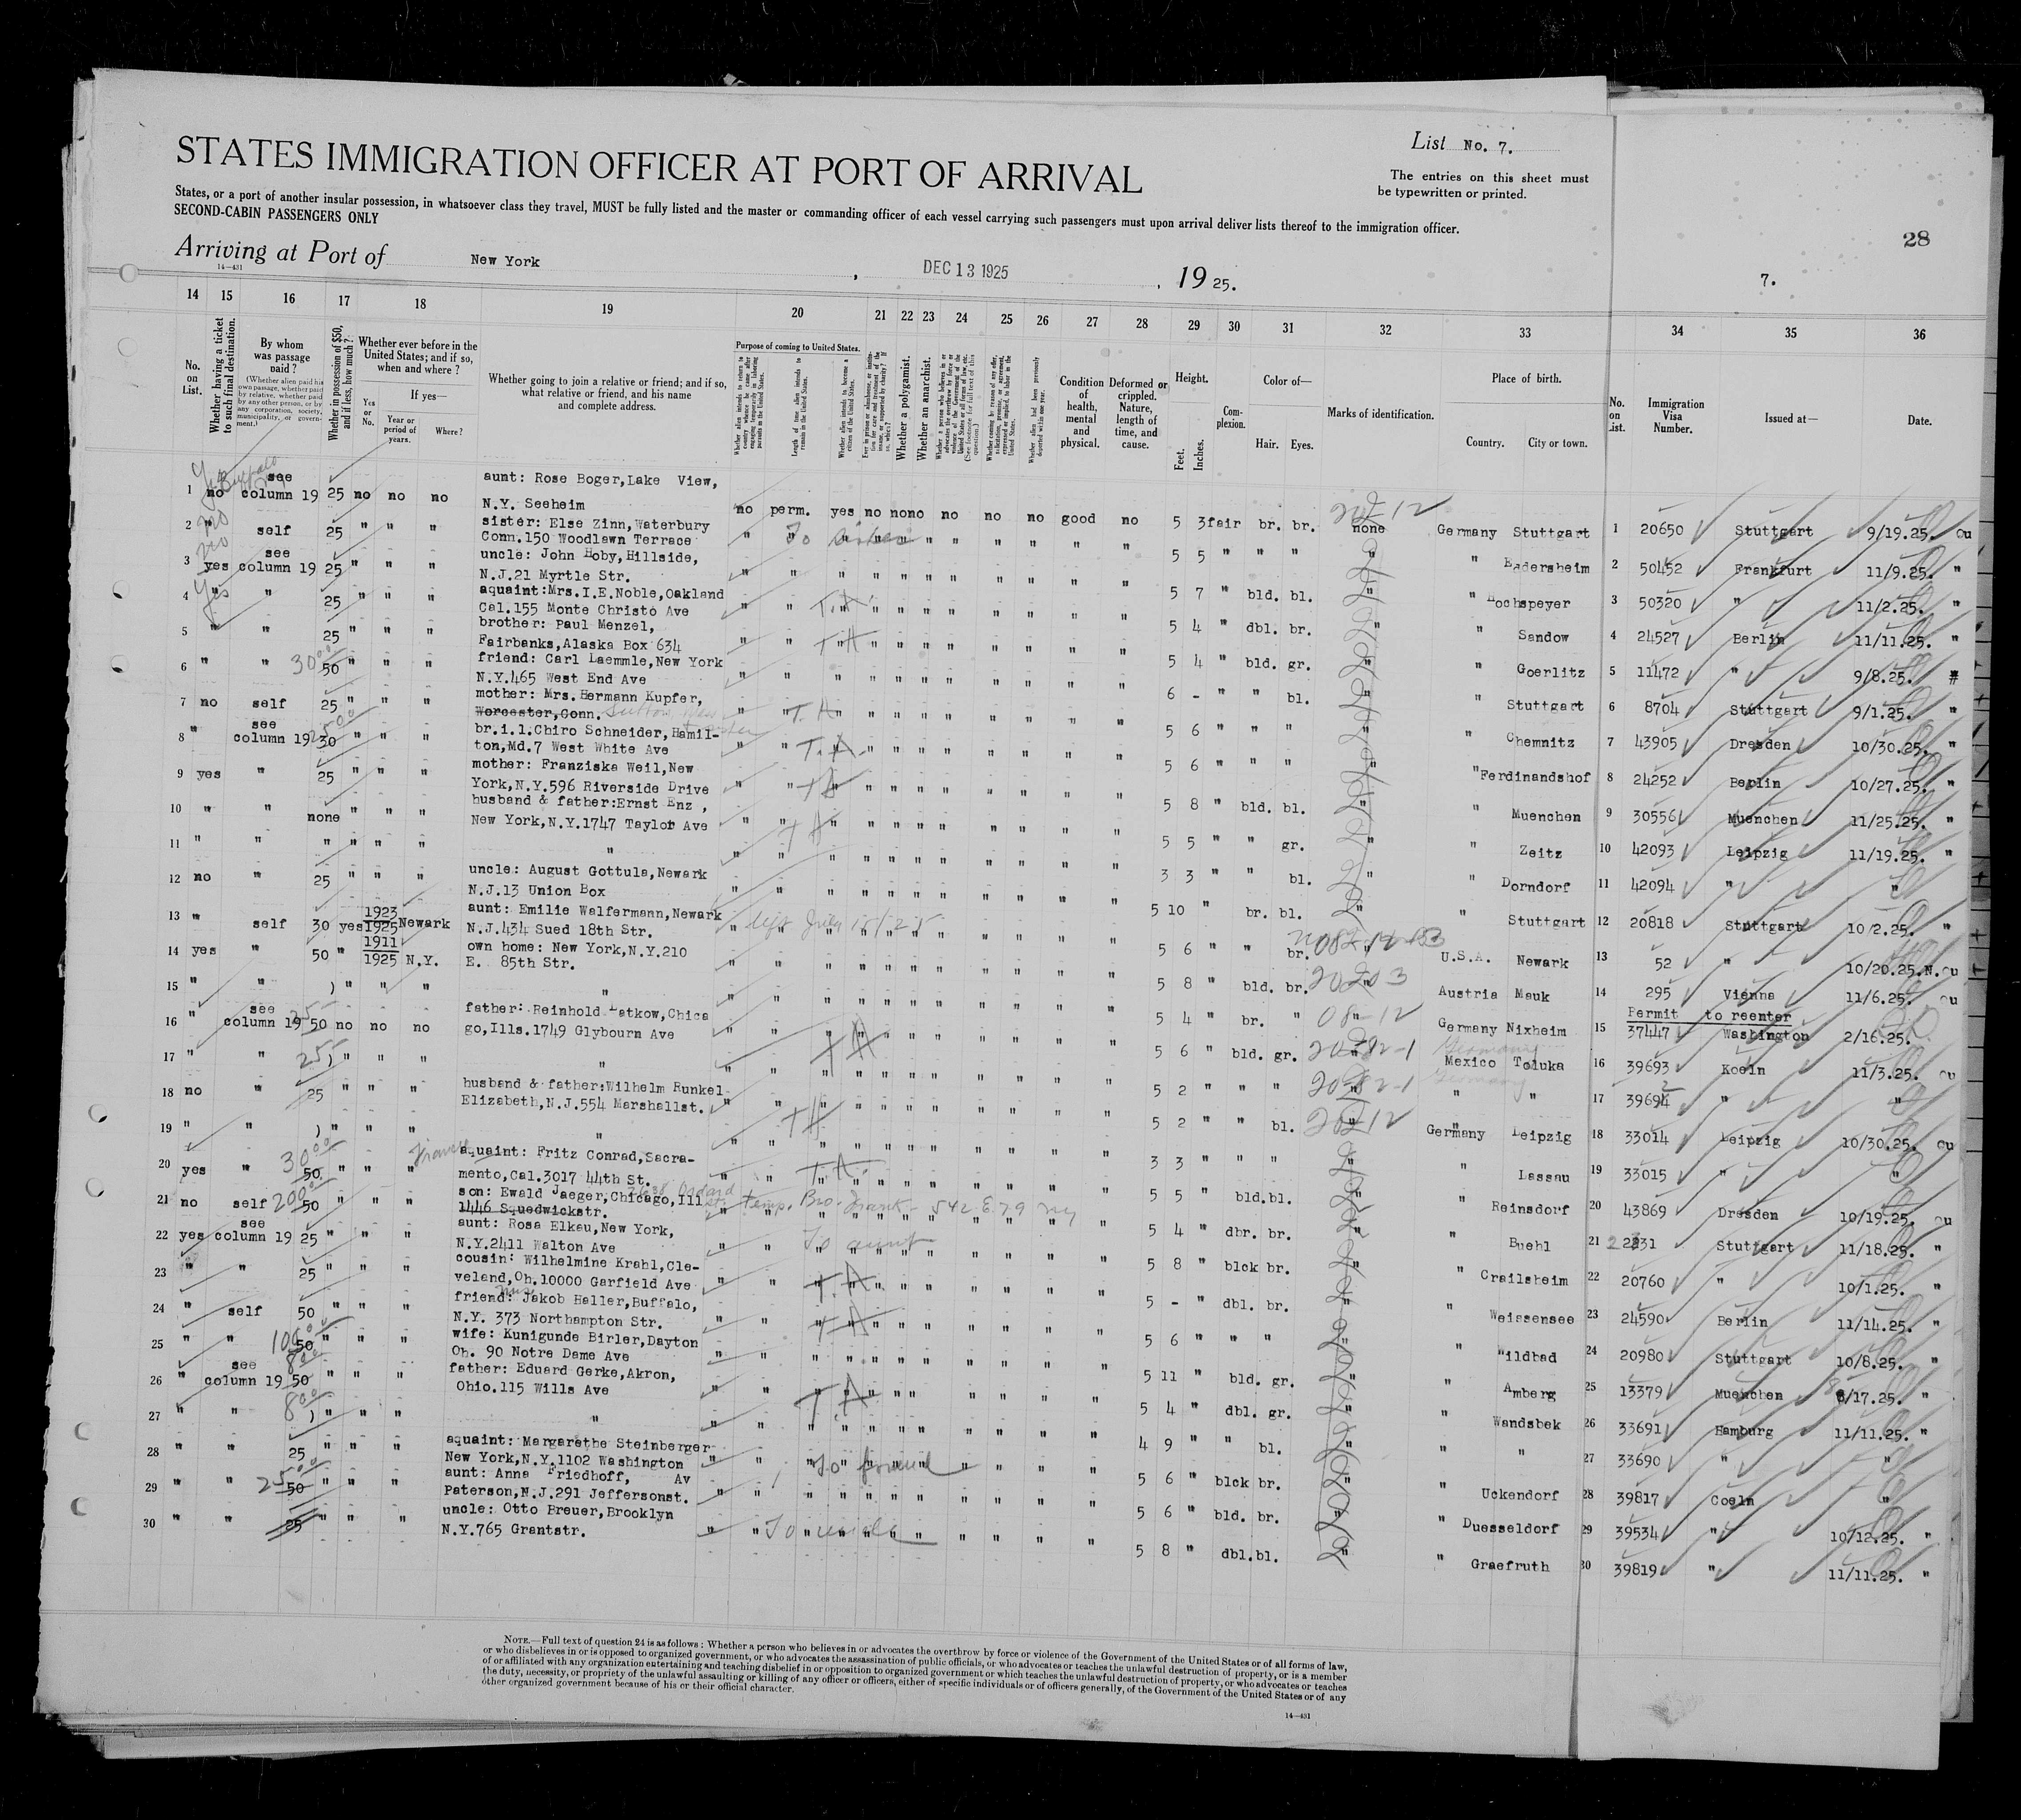 List No. 7.
STATES IMMIGRATION OFFICER AT PORT OF ARRIVAL
The entries on this sheet must
be typewritten or printed.
States, or a port of another insular possession, in whatsoever class they travel, MUST be fully listed and the master or commanding officer of each vessel carrying such passengers must upon arrival deliver lists thereof to the immigration officer.
SECOND-CABIN PASSENGERS ONLY
28
Arriving at Port of New York, DEC 13 1925, 19 25.
7.
14—431
14 15 16 17 18 19 20 21 22 23 24 25 26 27 28 29 30 31 32 33 34 35 36
No. on List.
Whether having a ticket to such final destination.
By whom was passage paid?
(Whether alien paid his own passage, whether paid by relative, whether paid by any other person, or by any corporation, society, municipality, or government.)
Whether in possession of $50, and if less, how much?
Whether ever before in the United States; and if so, when and where?
If yes—
Yes or No.
Year or period of years.
Where?
Whether going to join a relative or friend; and if so, what relative or friend, and his name and complete address.
Purpose of coming to United States.
Length of time alien intends to remain in the United States.
Whether alien intends to become a citizen of the United States.
Whether a polygamist.
Whether an anarchist.
Condition of health, mental and physical.
Deformed or crippled. Nature, length of time, and cause.
Height.
Feet. Inches.
Complexion.
Color of—
Hair. Eyes.
Marks of identification.
Place of birth.
Country. City or town.
No. on List.
Immigration Visa Number.
Issued at—
Date.
1 no see column 19 25 no no no aunt: Rose Boger, Lake View,
N.Y. Seeheim no perm. yes no no no no no no good no 5 3 fair br. br. none Germany Stuttgart 1 20650 Stuttgart 9/19.25. ou
2 " self 25 " " " sister: Else Zinn, Waterbury
Conn. 150 Woodlawn Terrace To sister 5 5 " " " " " 2 50452 Frankfurt 11/9.25. "
3 yes see column 19 25 " " " uncle: John Hoby, Hillside,
N.J. 21 Myrtle Str. 5 7 " bld. bl. " " Hochspeyer 3 50320 " 11/2.25. "
4 " " 25 " " " aquaint: Mrs. I.E. Noble, Oakland
Cal. 155 Monte Christo Ave T.A. 5 4 " dbl. br. " " Sandow 4 24527 Berlin 11/11.25. "
5 " " 25 " " " brother: Paul Menzel,
Fairbanks, Alaska Box 634 TA 5 4 " bld. gr. " " Goerlitz 5 11472 " 9/8.25. #
6 " " 50 " " " friend: Carl Laemmle, New York
N.Y. 465 West End Ave 6 - " " bl. " " Stuttgart 6 8704 Stuttgart 9/1.25. "
7 no self 25 " " " mother: Mrs. Hermann Kupfer,
Worcester, Conn. T.A. 5 6 " " " " " Chemnitz 7 43905 Dresden 10/30.25. "
8 " see column 19 30 " " " br.i.l. Chiro Schneider, Hamil-
ton, Md. 7 West White Ave T.A. 5 6 " " " " " Ferdinandshof 8 24252 Berlin 10/27.25. "
9 yes " 25 " " " mother: Franziska Weil, New
York, N.Y. 596 Riverside Drive 5 8 " bld. bl. " " Muenchen 9 30556 Muenchen 11/25.25. "
10 " " none " " " husband & father: Ernst Enz,
New York, N.Y. 1747 Taylor Ave 5 5 " " gr. " " Zeitz 10 42093 Leipzig 11/19.25. "
11 " " " " " " " 3 3 " " bl. " " Dorndorf 11 42094 " "
12 no " 25 " " " uncle: August Gottula, Newark
N.J. 13 Union Box 5 10 " br. bl. " Stuttgart 12 20818 Stuttgart 10/2.25. "
13 " self 30 yes 1923 1925 Newark aunt: Emilie Walfermann, Newark
N.J. 434 Sued 18th Str. 5 6 " " br. " U.S.A. Newark 13 52 " 10/20.25. N.ou
14 yes " 50 " 1911 1925 N.Y. own home: New York, N.Y. 210
E. 85th Str. 5 8 " bld. br. Austria Mauk 14 295 Vienna 11/6.25. ou
15 " " ) " " " " 5 4 " br. " " Germany Nixheim 15 Permit to reenter
37447 Washington 2/16.25.
16 " see column 19 50 no no no father: Reinhold Latkow, Chica
go, Ills. 1749 Glybourn Ave TA 5 6 " bld. gr. " Mexico Toluka 16 39693 Koeln 11/3.25. ou
17 " " ) " " " " 5 2 " " " " " " 17 39694 " "
18 no " 25 " " " husband & father: Wilhelm Runkel
Elizabeth, N.J. 554 Marshallst. 5 2 " " bl. " Germany Leipzig 18 33014 Leipzig 10/30.25. ou
19 " " ) " " " " 3 3 " " " " " Lassau 19 33015 " "
20 yes " 50 " " " aquaint: Fritz Conrad, Sacra-
mento, Cal. 3017 44th St. T.A. 5 5 " bld. bl. " " Reinsdorf 20 43869 Dresden 10/19.25. ou
21 no self 50 " " " son: Ewald Jaeger, Chicago, Ill
1446 Squedwickstr. temp. Bro. Frank - 542 E. 79 ny 5 4 " dbr. br. " " Buehl 21 2231 Stuttgart 11/18.25. "
22 yes see column 19 25 " " " aunt: Rosa Elkau, New York,
N.Y. 2411 Walton Ave To aunt 5 8 " blck br. " " Crailsheim 22 20760 " 10/1.25. "
23 " " 25 " " " cousin: Wilhelmine Krahl, Cle-
veland, Oh. 10000 Garfield Ave T.A. 5 - " dbl. br. " " Weissensee 23 24590 Berlin 11/14.25. "
24 " self 50 " " " friend: Jakob Haller, Buffalo,
N.Y. 373 Northampton Str. TA 5 6 " " " " " Wildbad 24 20980 Stuttgart 10/8.25. "
25 " " 50 " " " wife: Kunigunde Birler, Dayton
Oh. 90 Notre Dame Ave 5 11 " bld. gr. " " Amberg 25 13379 Muenchen 8/17.25. "
26 " see column 19 50 " " " father: Eduard Gerke, Akron,
Ohio. 115 Wills Ave TA 5 4 " dbl. gr. " " Wandsbek 26 33691 Hamburg 11/11.25. "
27 " " ) " " " " 4 9 " " bl. " " " 27 33690 " "
28 " " 25 " " " aquaint: Margarethe Steinberger
New York, N.Y. 1102 Washington Av To friend 5 6 " blck br. " " Uckendorf 28 39817 Coeln "
29 " " 50 " " " aunt: Anna Friedhoff,
Paterson, N.J. 291 Jeffersonst. 5 6 " bld. br. " " Duesseldorf 29 39534 " 10/12.25. "
30 " " 25 " " " uncle: Otto Breuer, Brooklyn
N.Y. 765 Grantstr. To uncle 5 8 " dbl. bl. " " Graefruth 30 39819 " 11/11.25. "
NOTE.—Full text of question 24 is as follows: Whether a person who believes in or advocates the overthrow by force or violence of the Government of the United States or of all forms of law,
or who disbelieves in or is opposed to organized government, or who advocates the assassination of public officials, or who advocates or teaches the unlawful destruction of property, or is a member
of or affiliated with any organization entertaining and teaching disbelief in or opposition to organized government or which teaches the unlawful destruction of property, or who advocates or teaches
the duty, necessity, or propriety of the unlawful assaulting or killing of any officer or officers, either of specific individuals or of officers generally, of the Government of the United States or of any
other organized government because of his or their official character.
14—431